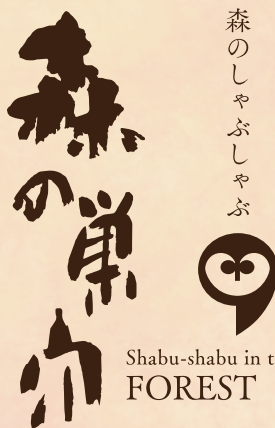 森のしゃぶしゃぶ
森の巣
Shabu-shabu in t
FOREST